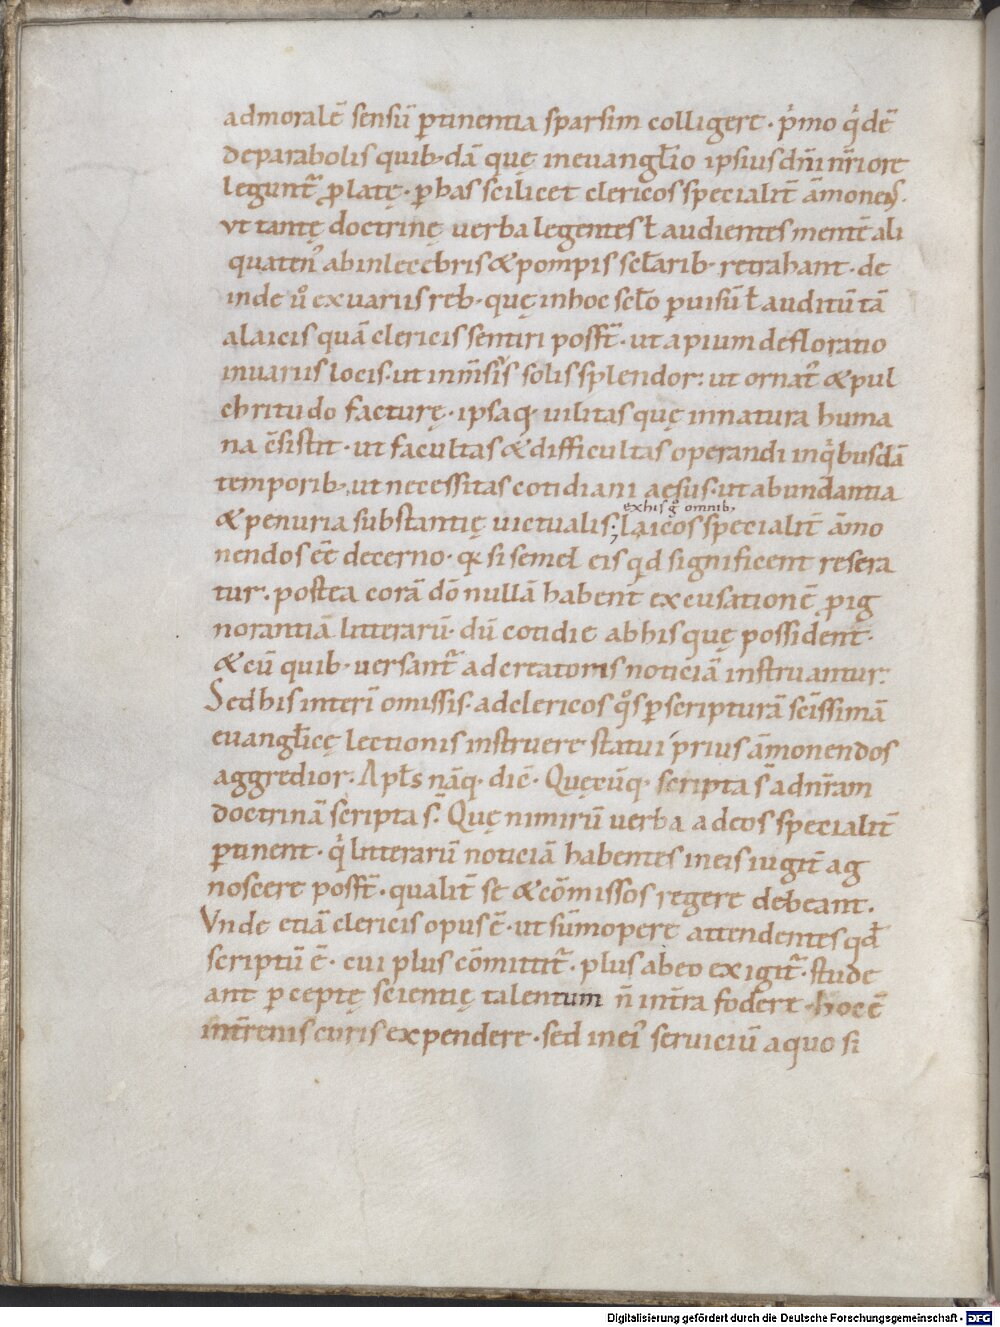 admoralē sensū ꝑtinentia sparsim colligere · p̍mo q̍dē
deparabolis quib; dā quę inevangl̄io ipsius dn̄i nr̄i ore
legunt᷑ ꝓlatę · ꝑ has scilicet clericos specialit̄ āmonens ·
vt tantę doctrinę verba legentes ł audientes mentē ali
quaten᷒ ab inlecebris & pompis scl̄arib; retrahant · de
inde ů ex variis reb; quę inhoc scl̄o ꝑ uisū ł auditū tā
alaicis quā clericis sentiri posst᷑ · ut apium defloratio
inuariis locis · ut inm̄sis solis splendor : ut ornat᷒ & pul
chritudo facturę · ipsaq; uilitas quę innatura huma
na c̄sistit · ut facultas & difficultas operandi inq̍busdā
temporib; ut necessitas cotidiani aesus · ut abundantia
ex his g̊ omnib;
& penuria substantię uictualis ; laicos specialit̄ āmo
nendos ēē decerno · q; si semel eis qd̄ significent resera
tur · postea corā dō nullā habent excusationē ꝓ ig
norantiā litterarū · dū cotidie ab his quę possident ·
& cū quib; versant᷑ ad certatoris noticiā instruantur :
Sed his interī omissis · ad clericos q̊s ꝑ scripturā sc̄issimā
euangl̄icę lectionis instruere statui prius āmonendos
aggredior : Apl̄s nāq; dic̄ · Quęcūq; scripta s̄ adnr̄am
doctrinā scripta s̄ · Quę nimirū uerba ad eos specialit̄
ꝑtinent · q̍ litterarū noticiā habentes ineis iugit̄ ag
noscere posst᷑ · qualit̄ se & cōmissos regere debeant .
Vnde etiā clericis opus ē · ut sūmopere attendentes qd̄
scriptū ē · cui plus cōmittit᷑ · plus ab eo exigit᷑ · stude
ant ꝑceptę scientię talentum n̄ int̄ra fodere · hoc ē
int̄renis curis expendere · sed inei᷒ seruiciū aquo si
Digitalisierung gefördert durch die Deutsche Forschungsgemeinschaft - DFG